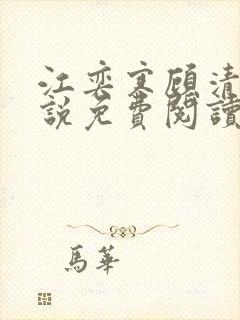 江奕寒顧清
說免費閱讀
馬華